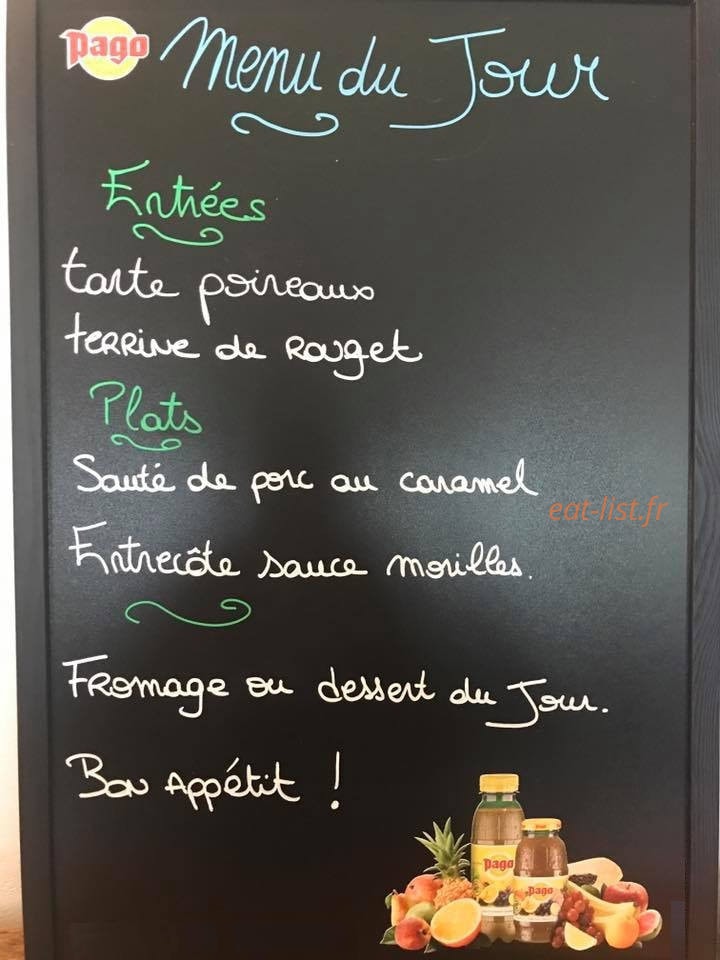 Pago
Menu du Jour
Entrées
tarte poireaux
terrine de Rouget
Plats
Sauté de porc au caramel
eat-list.fr
Entrecôte sauce morilles.
Fromage ou dessert du Jour.
Bon Appétit !
Pago
Pago